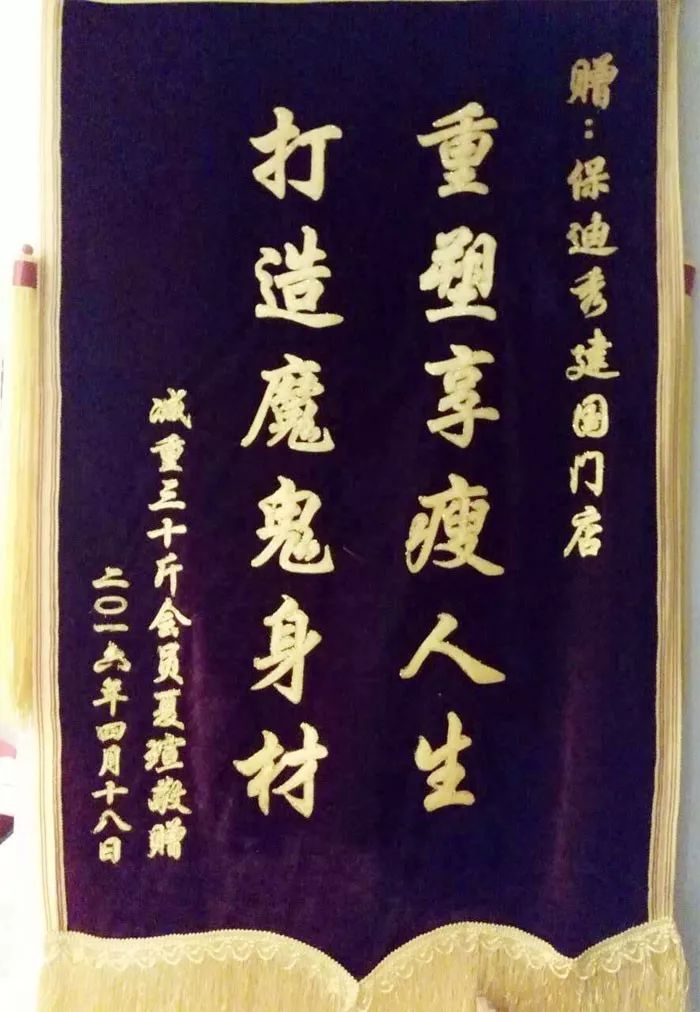 赠：保迪秀建国门店
重塑享瘦人生
打造魔鬼身材
减重三十斤会员夏瑄敬赠
二〇一六年四月十八日